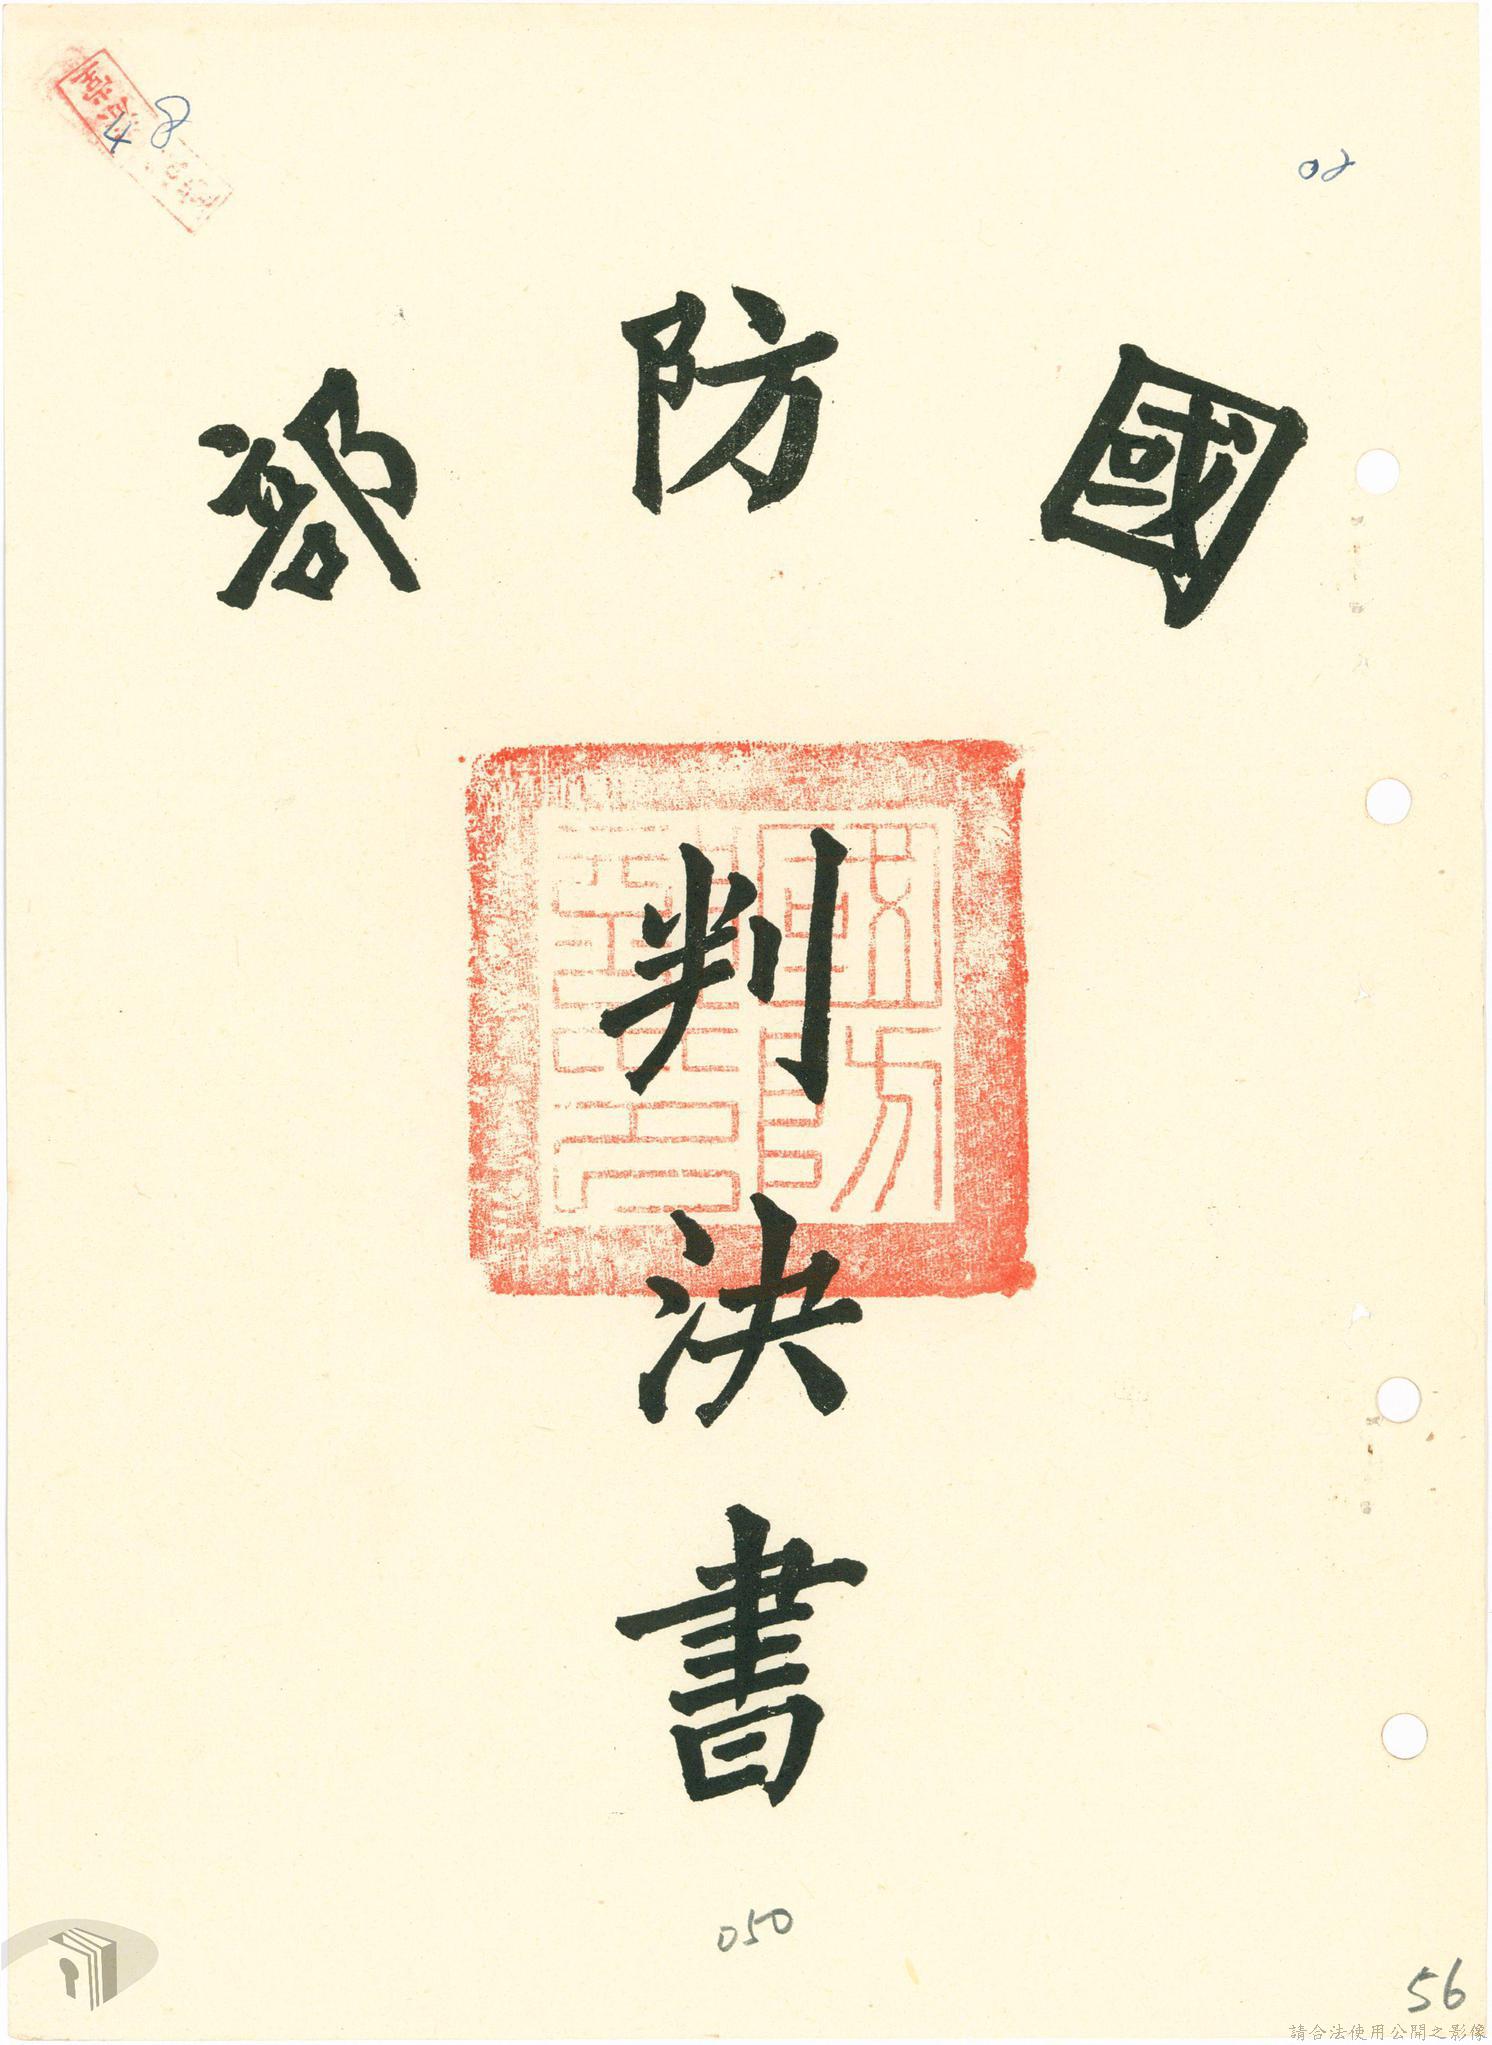 48
02
國防部
判決書
050
56
請合法使用公開之影像